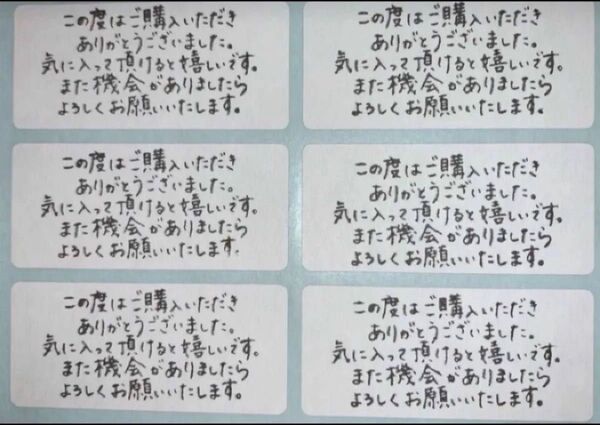 この度はご購入いただき
ありがとうございました。
気に入って頂けると嬉しいです。
また機会がありましたら
よろしくお願いいたします。
この度はご購入いただき
ありがとうございました。
気に入って頂けると嬉しいです。
また機会がありましたら
よろしくお願いいたします。
この度はご購入いただき
ありがとうございました。
気に入って頂けると嬉しいです。
また機会がありましたら
よろしくお願いいたします。
この度はご購入いただき
ありがとうございました。
気に入って頂けると嬉しいです。
また機会がありましたら
よろしくお願いいたします。
この度はご購入いただき
ありがとうございました。
気に入って頂けると嬉しいです。
また機会がありましたら
よろしくお願いいたします。
この度はご購入いただき
ありがとうございました。
気に入って頂けると嬉しいです。
また機会がありましたら
よろしくお願いいたします。